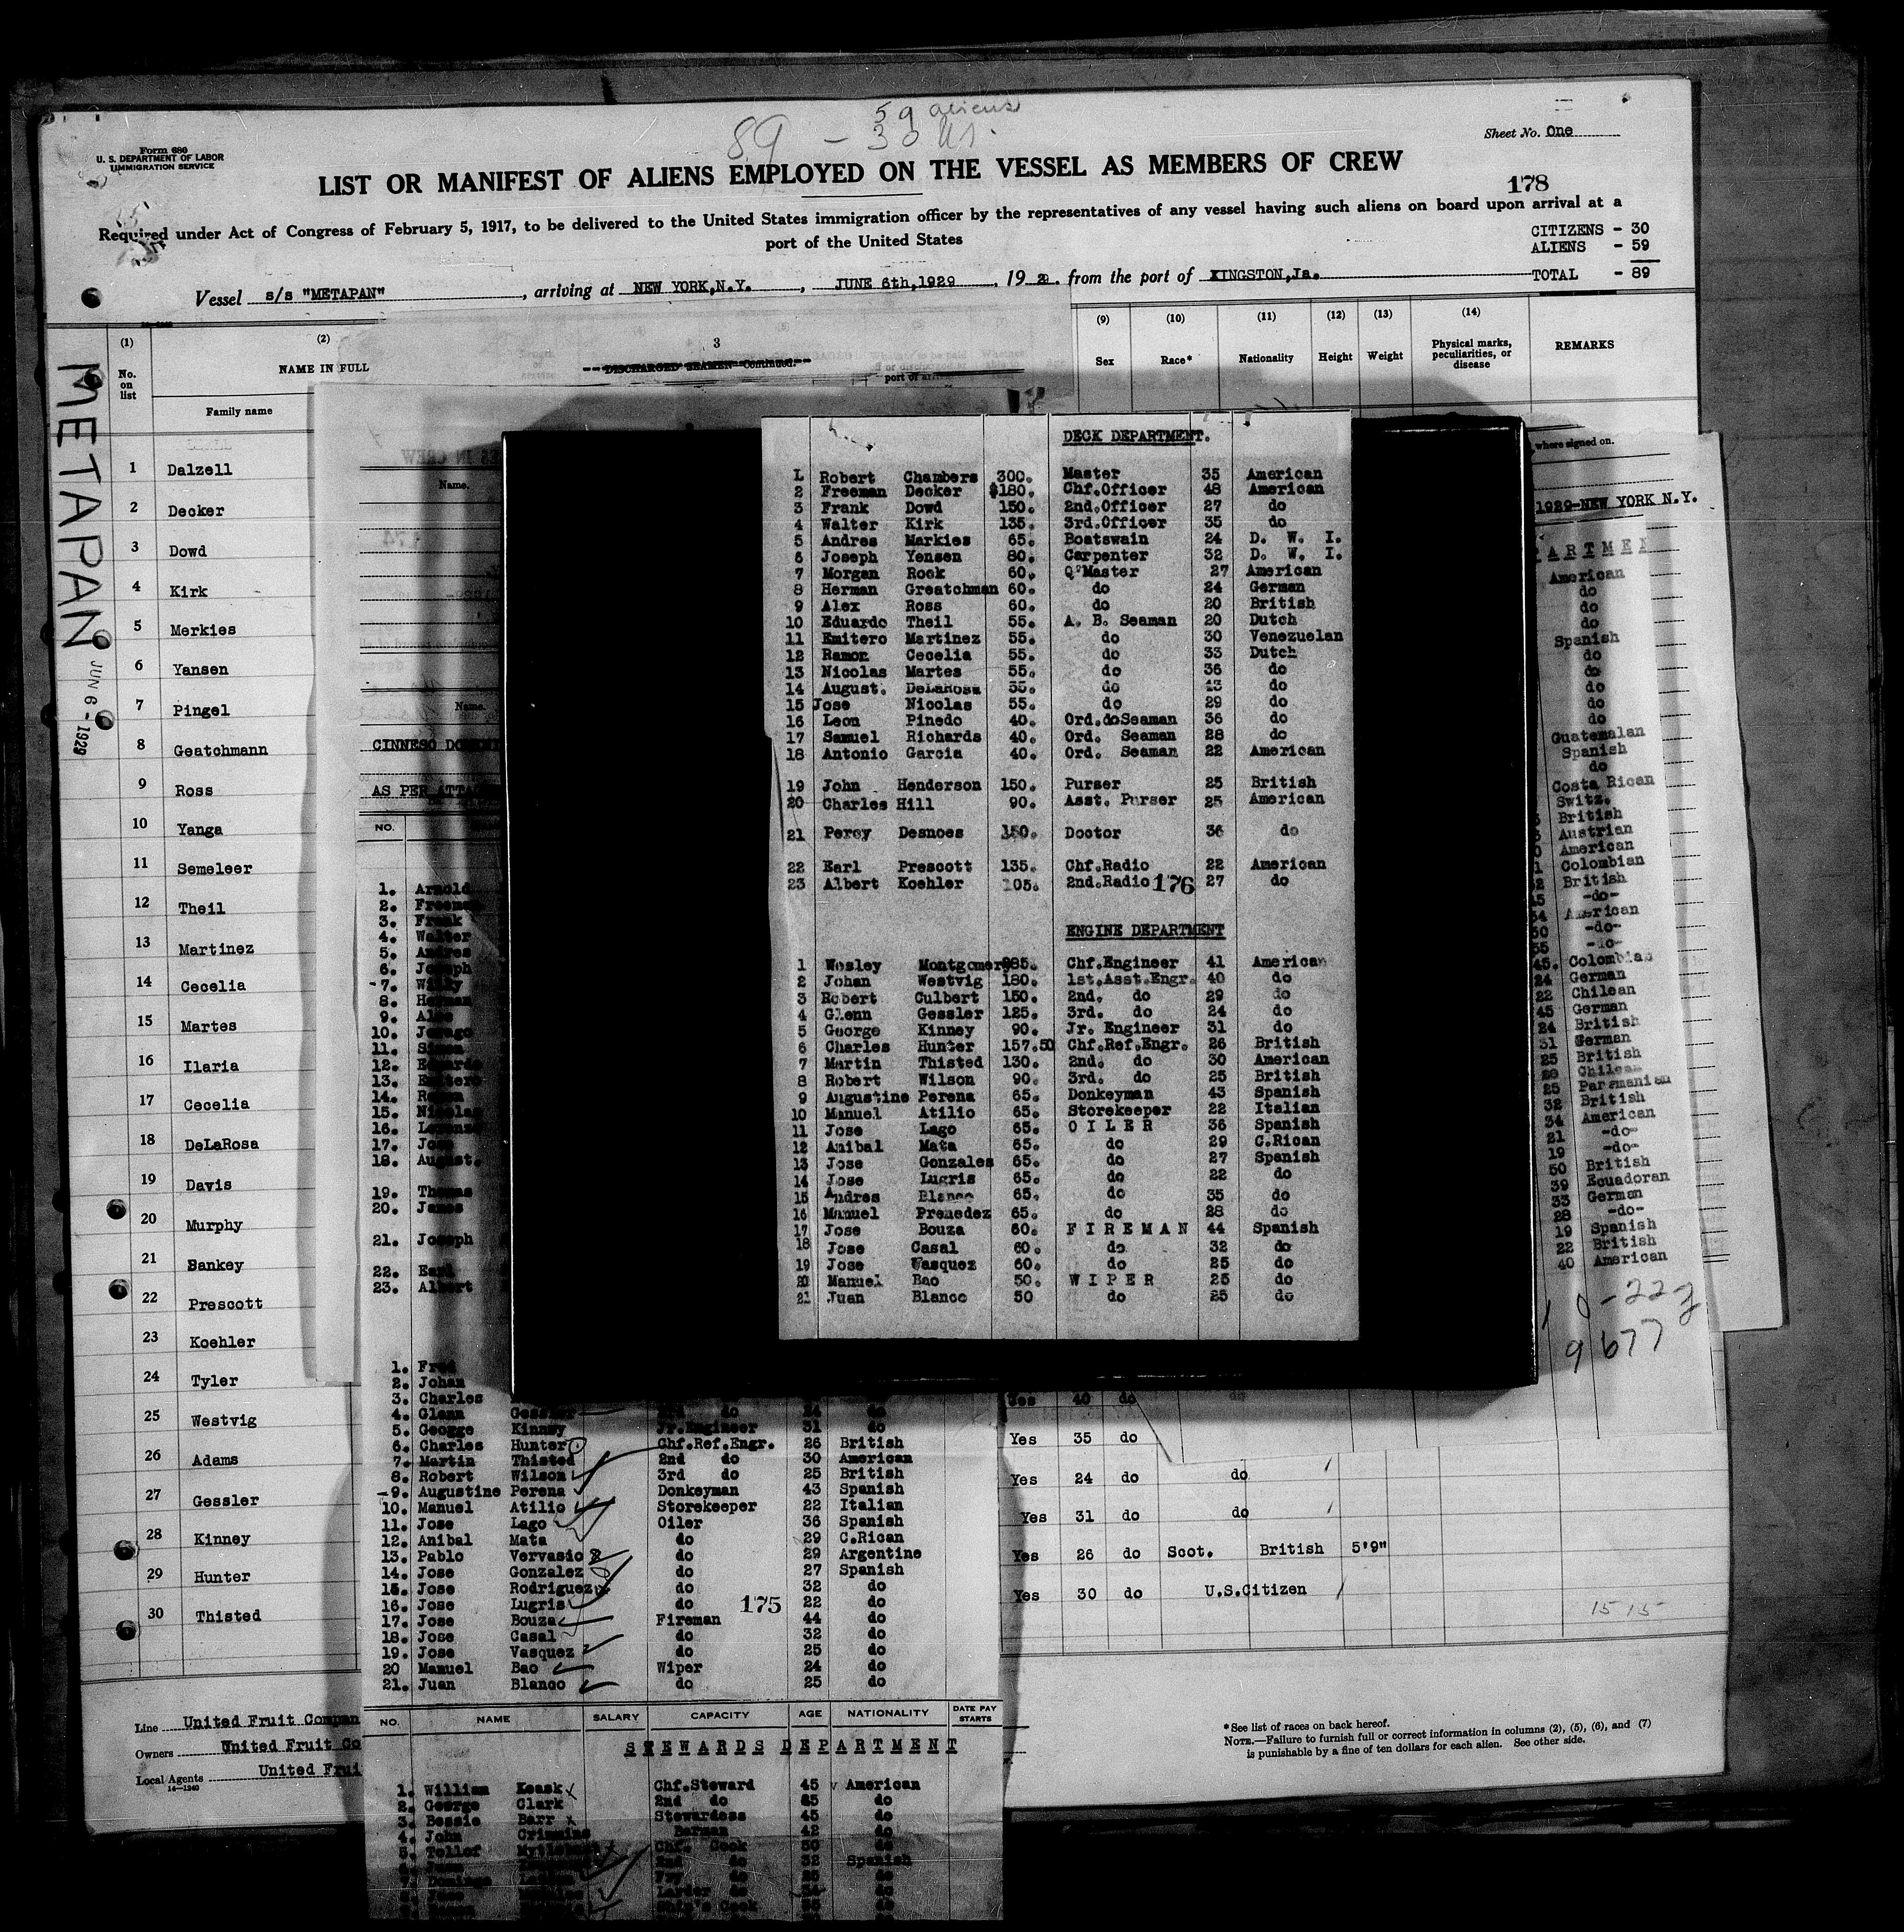 59 aliens
89 - 30 US.
Form 680
U. S. DEPARTMENT OF LABOR
IMMIGRATION SERVICE
Sheet No. One
LIST OR MANIFEST OF ALIENS EMPLOYED ON THE VESSEL AS MEMBERS OF CREW
178
Required under Act of Congress of February 5, 1917, to be delivered to the United States immigration officer by the representatives of any vessel having such aliens on board upon arrival at a
port of the United States
CITIZENS - 30
ALIENS - 59
TOTAL - 89
Vessel s/s "METAPAN", arriving at NEW YORK,N.Y., JUNE 6th,1929, 1929. from the port of KINGSTON,Ja.
(1) (2) 3 (9) (10) (11) (12) (13) (14)
No. on list NAME IN FULL Sex Race* Nationality Height Weight Physical marks, peculiarities, or disease REMARKS
--DISCHARGED SEAMEN Continued.--
Family name
METAPAN
JUN 6 - 1929
1 Dalzell
2 Decker
3 Dowd
4 Kirk
5 Merkies
6 Yansen
7 Pingel
8 Geatchmann
9 Ross
10 Yanga
11 Semeleer
12 Theil
13 Martinez
14 Cecelia
15 Martes
16 Ilaria
17 Cecelia
18 DeLaRosa
19 Davis
20 Murphy
21 Sankey
22 Prescott
23 Koehler
24 Tyler
25 Westvig
26 Adams
27 Gessler
28 Kinney
29 Hunter
30 Thisted
Line United Fruit Compan
Owners United Fruit Co
Local Agents United Frui
14-1240
Name.
Name.
CINNESO DO
AS PER ATTA
NO.
1. Arnold
2. Freeman
3. Frank
4. Walter
5. Andres
6. Joseph
-7. Willy
8. Herman
9. Alex
10.
11. Simon
12. Eduardo
13. Emitero
14. Ramon
15. Nicolas
16. Lorenzo
17. Jose
18. August.
19. Thomas
20. James
21. Joseph
22. Earl
23. Albert
DECK DEPARTMENT.
1 Robert Chambers 300. Master 35 American
2 Freeman Decker $180. Chf.Officer 48 American
3 Frank Dowd 150. 2nd.Officer 27 do
4 Walter Kirk 135. 3rd.Officer 35 do
5 Andres Markies 65. Boatswain 24 D. W. I.
6 Joseph Yensen 80. Carpenter 32 D. W. I.
7 Morgan Rook 60. Q°Master 27 American
8 Herman Greatchman 60. do 24 German
9 Alex Ross 60. do 20 British
10 Eduardo Theil 55. A. B. Seaman 20 Dutch
11 Emitero Martinez 55. do 30 Venezuelan
12 Ramon Cecelia 55. do 33 Dutch
13 Nicolas Martes 55. do 36 do
14 August. DeLaRosa 55. do 43 do
15 Jose Nicolas 55. do 29 do
16 Leon Pinedo 40. Ord.doSeaman 36 do
17 Samuel Richards 40. Ord. Seaman 28 do
18 Antonio Garcia 40. Ord. Seaman 22 American
19 John Henderson 150. Purser 25 British
20 Charles Hill 90. Asst. Purser 25 American
21 Percy Desnoes 150. Doctor 36 do
22 Earl Prescott 135. Chf.Radio 22 American
23 Albert Koehler 105. 2nd.Radio 176 27 do
ENGINE DEPARTMENT
1 Wesley Montgomery 285. Chf.Engineer 41 American
2 Johan Westvig 180. 1st.Asst.Engr. 40 do
3 Robert Culbert 150. 2nd. do 29 do
4 Glenn Gessler 125. 3rd. do 24 do
5 George Kinney 90. Jr. Engineer 31 do
6 Charles Hunter 157.50 Chf.Ref.Engr. 26 British
7 Martin Thisted 130. 2nd. do 30 American
8 Robert Wilson 90. 3rd. do 25 British
9 Augustine Perena 65. Donkeyman 43 Spanish
10 Manuel Atilio 65. Storekeeper 22 Italian
11 Jose Lago 65. O I L E R 36 Spanish
12 Anibal Mata 65. do 29 C.Rican
13 Jose Gonzales 65. do 27 Spanish
14 Jose Lugris 65. do 22 do
15 Andres Blanco 65. do 35 do
16 Manuel Prenedez 65. do 28 do
17 Jose Bouza 60. F I R E M A N 44 Spanish
18 Jose Casal 60. do 32 do
19 Jose Vasquez 60. do 25 do
20 Manuel Bao 50. W I P E R 25 do
21 Juan Blanco 50 do 25 do
where signed on.
1929-NEW YORK N.Y.
PARTMEN
American
do
do
do
Spanish
do
do
do
do
do
Guatemalan
Spanish
do
Costa Rican
Switz.
British
Austrian
American
Colombian
British
-do-
54 American
50 -do-
55 -do-
45. Colombian
24 German
22 Chilean
45 German
24 British
31 German
25 British
20 Chilean
25 Parmanian
32 British
34 American
21 -do-
19 -do-
50 British
39 Ecuadoran
33 German
28 -do-
19 Spanish
22 British
40 American
9677
1. Fred
2. Johan
3. Charles
4. Glenn Gessler 3rd do 24 do
5. Geogge Kinney Jr.Engineer 31 do
6. Charles Hunter Chf.Ref.Engr. 26 British
7. Martin Thisted 2nd do 30 American
8. Robert Wilson 3rd do 25 British
-9. Augustine Perena Donkeyman 43 Spanish
10. Manuel Atilio Storekeeper 22 Italian
11. Jose Lago Oiler 36 Spanish
12. Anibal Mata do 29 C.Rican
13. Pablo Vervasio do 29 Argentine
14. Jose Gonzalez do 27 Spanish
15. Jose Rodriguez do 32 do
16. Jose Lugris do 175 22 do
17. Jose Bouza Fireman 44 do
18. Jose Casal do 32 do
19. Jose Vasquez do 25 do
20 Manuel Bao Wiper 24 do
21. Juan Blanco do 25 do
Yes 40 do do
Yes 35 do
Yes 24 do do
Yes 31 do do
Yes 26 do Scot. British 5'9"
Yes 30 do U.S.Citizen
15 15
NO. NAME SALARY CAPACITY AGE NATIONALITY DATE PAY STARTS
STEWARDS DEPARTMENT
1. William Keask Chf.Steward 45 American
2. George Clark 2nd do 25 do
3. Bessie Barr Stewardess 45 do
4. John Crimmins Barman 42 do
5. Tellef Chf. Cook 50 do
Spanish
*See list of races on back hereof.
NOTE.—Failure to furnish full or correct information in columns (2), (5), (6), and (7)
is punishable by a fine of ten dollars for each alien. See other side.